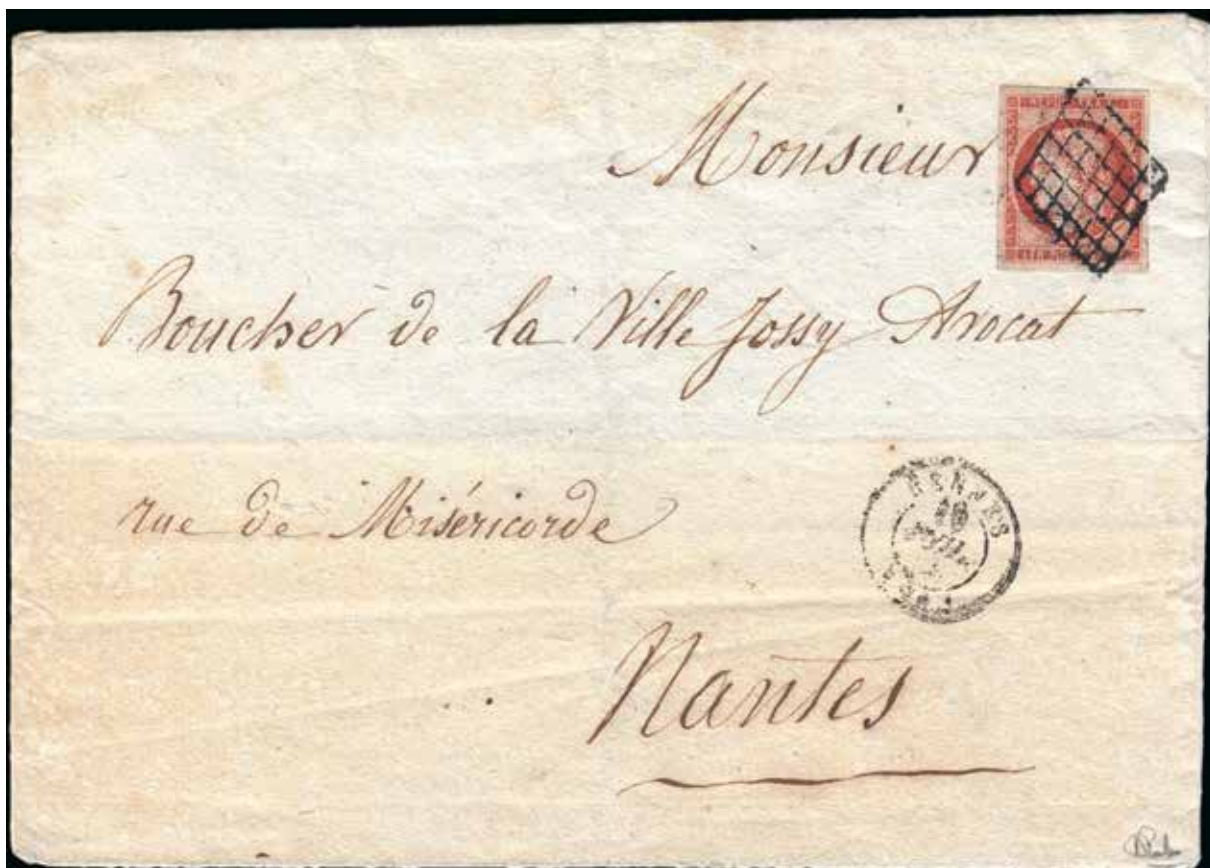 Monsieur
Boucher de la Ville Jossy Avocat
rue de Miséricorde
RENNES
Nantes